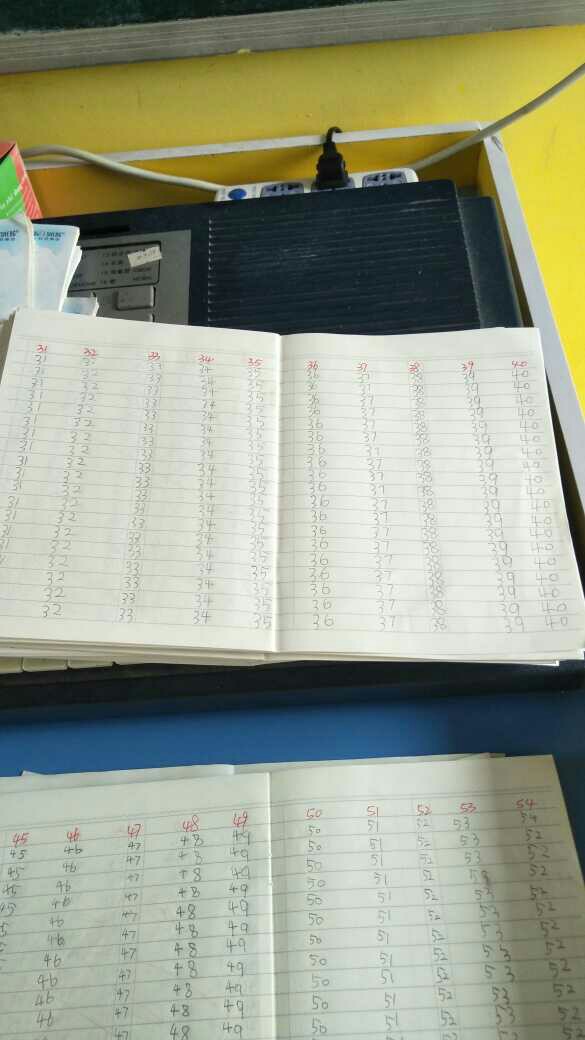 31 32 33 34 35 36 37 38 39 40
31 32 33 34 35 36 37 38 39 40
31 32 33 34 35 36 37 38 39 40
31 32 33 34 35 36 37 38 39 40
31 32 33 34 35 36 37 38 39 40
31 32 33 34 35 36 37 38 39 40
31 32 33 34 35 36 37 38 39 40
31 32 33 34 35 36 37 38 39 40
31 32 33 34 35 36 37 38 39 40
31 32 33 34 35 36 37 38 39 40
31 32 33 34 35 36 37 38 39 40
31 32 33 34 35 36 37 38 39 40
31 32 33 34 35 36 37 38 39 40
31 32 33 34 35 36 37 38 39 40
31 32 33 34 35 36 37 38 39 40
32 33 34 35 36 37 38 39 40
32 33 34 35 36 37 38 39 40
32 33 34 35 36 37 38 39 40
32 33 34 35 36 37 38 39 40
45 46 47 48 49 50 51 52 53 54
45 46 47 48 49 50 51 52 53 54
45 46 47 48 49 50 51 52 53 52
45 46 47 48 49 50 51 52 53 52
45 46 47 48 49 50 51 52 53 52
46 47 48 49 50 51 52 53 52
46 47 48 49 50 51 52 53 52
46 47 48 49 50 51 52 53 52
46 47 48 49 50 51 52 53 52
46 47 48 49 50 51 52 53 52
46 47 48 49 50 51 52 53 52
47 48 49 50 51 52 53 52